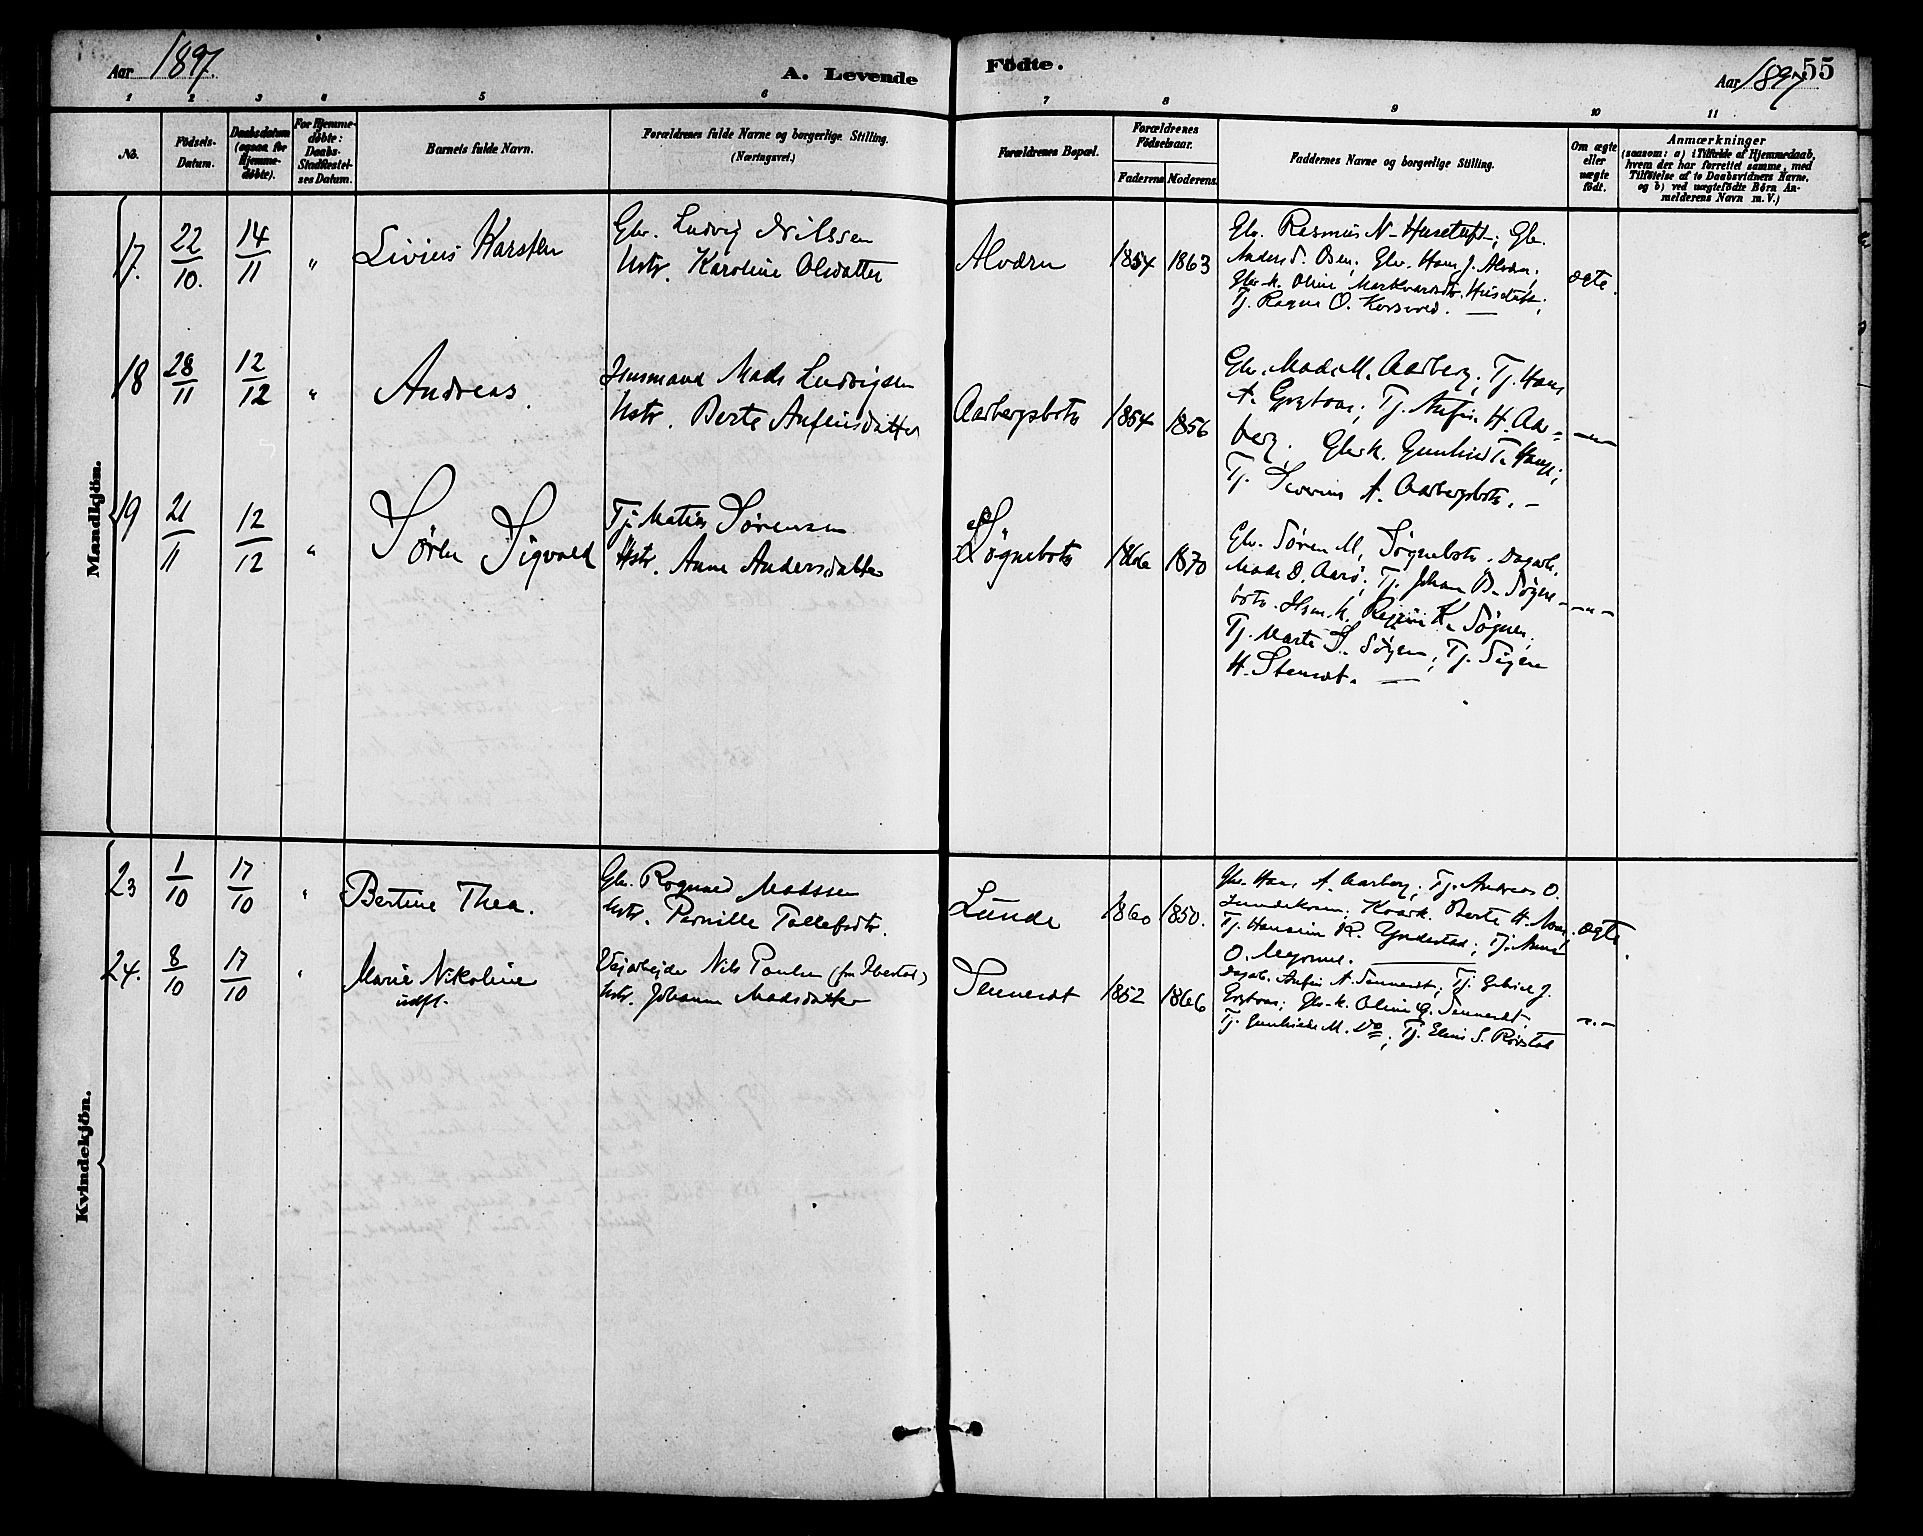 Aar 1897.
A. Levende
Fødte.
Aar 1897
55
1 2 3 4 5 6 7 8 9 10 11
No.
Fødsels-
Datum.
Daabsdatum
(ogsaa for
Hjemme-
døbte).
For Hjemme-
døbte:
Daabs-
Stadfæstel-
ses Datum.
Barnets fulde Navn.
Forældrenes fulde Navne og borgerlige Stilling.
(Næringsvei.)
Forældrenes Bopæl.
Forældrenes
Fødselsaar.
Faderens Moderens.
Faddernes Navne og borgerlige Stilling.
Om ægte
eller
uægte
født.
Anmærkninger
(saasom: a) i Tilfælde af Hjemmedaab,
hvem der har forrettet samme, med
Tilføielse af to Daabsvidners Navne,
og b) ved uægtefødte Børn An-
melderens Navn m. V.)
Mandkjøn.
17. 22/10. 14/11 " Livius Karsten
Gbr. Ludvig Nilssen
Ustr. Karoline Olsdatter
Alværn 1854 1863
Gbr. Rasmus N. Husetuft; Gbr.
Anders S. Osen; Gbr. Hans J. Alværn;
Gbr.k. Oline Markvardsdtr. Husetuft;
Tj. Ragna O. Korsvold.
ægte.
18 28/11 12/12 " Andreas.
Husmand Mads Ludvigsen
Ustr. Berte Anfinsdatter
Aarbergsbotn 1854 1856
Gbr. Mads M. Aarberg; Tj. Hans
A. ; Tj. Anfin H. Aar=
berg; Gbr.k. Gunhild T. ;
Tj. A. Aarbergsbotn. -
-"-
19 21/11 12/12 " Søren Sigvald
Tj. Matias Sørensen
Hstr. Anne Andersdatter
Søgnebotn 1866 1870
Gbr. Søren M. Søgnebotn. Dagarb.
Mads O. Aarø; Tj. Johan B. Søgne-
botn. Hsm.k. K. Søgnen;
Tj. Marte S. Søgnen; Tj. Signe
H. .
-"-
Kvindekjøn.
23 1/10 17/10 " Bertine Thea.
Gbr. Rognald Madssen
Ustr. Pernille Tollefsdtr.
Lunde 1860 1850.
Gbr. Hans A. Aarberg; Tj. Andreas O.
; Kaark. Berte H. ;
Tj. Hansine R. Yndestad; Tj. Anna
O. .
ægte.
24. 8/10 17/10 " Marie Nikoline
udfl.
Veiarbeider Nils Paulsen (fra Ibestad)
Ustr. Johanne Madsdatter
1852 1866
Dagarb. Anfin A. ; Tj. Gabriel J.
; Gbr.k. Oline G. ;
Tj. Gunhilde M. Do; Tj. Eline S. Rørstad
-"-